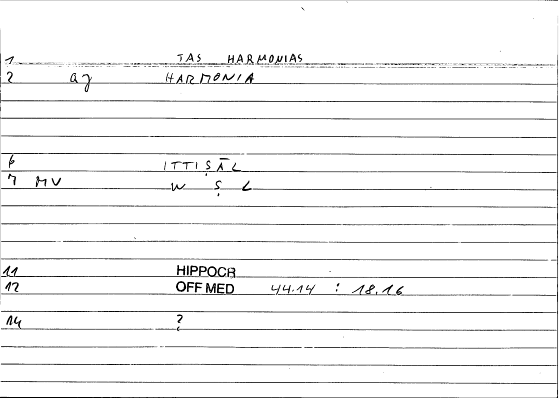 1 TAS HARMONIAS
2 aj HARMONIA
6 ITTIṢĀL
7 MV W Ṣ L
11 HIPPOCR
12 OFF MED 44.14 : 18.16
14 ?